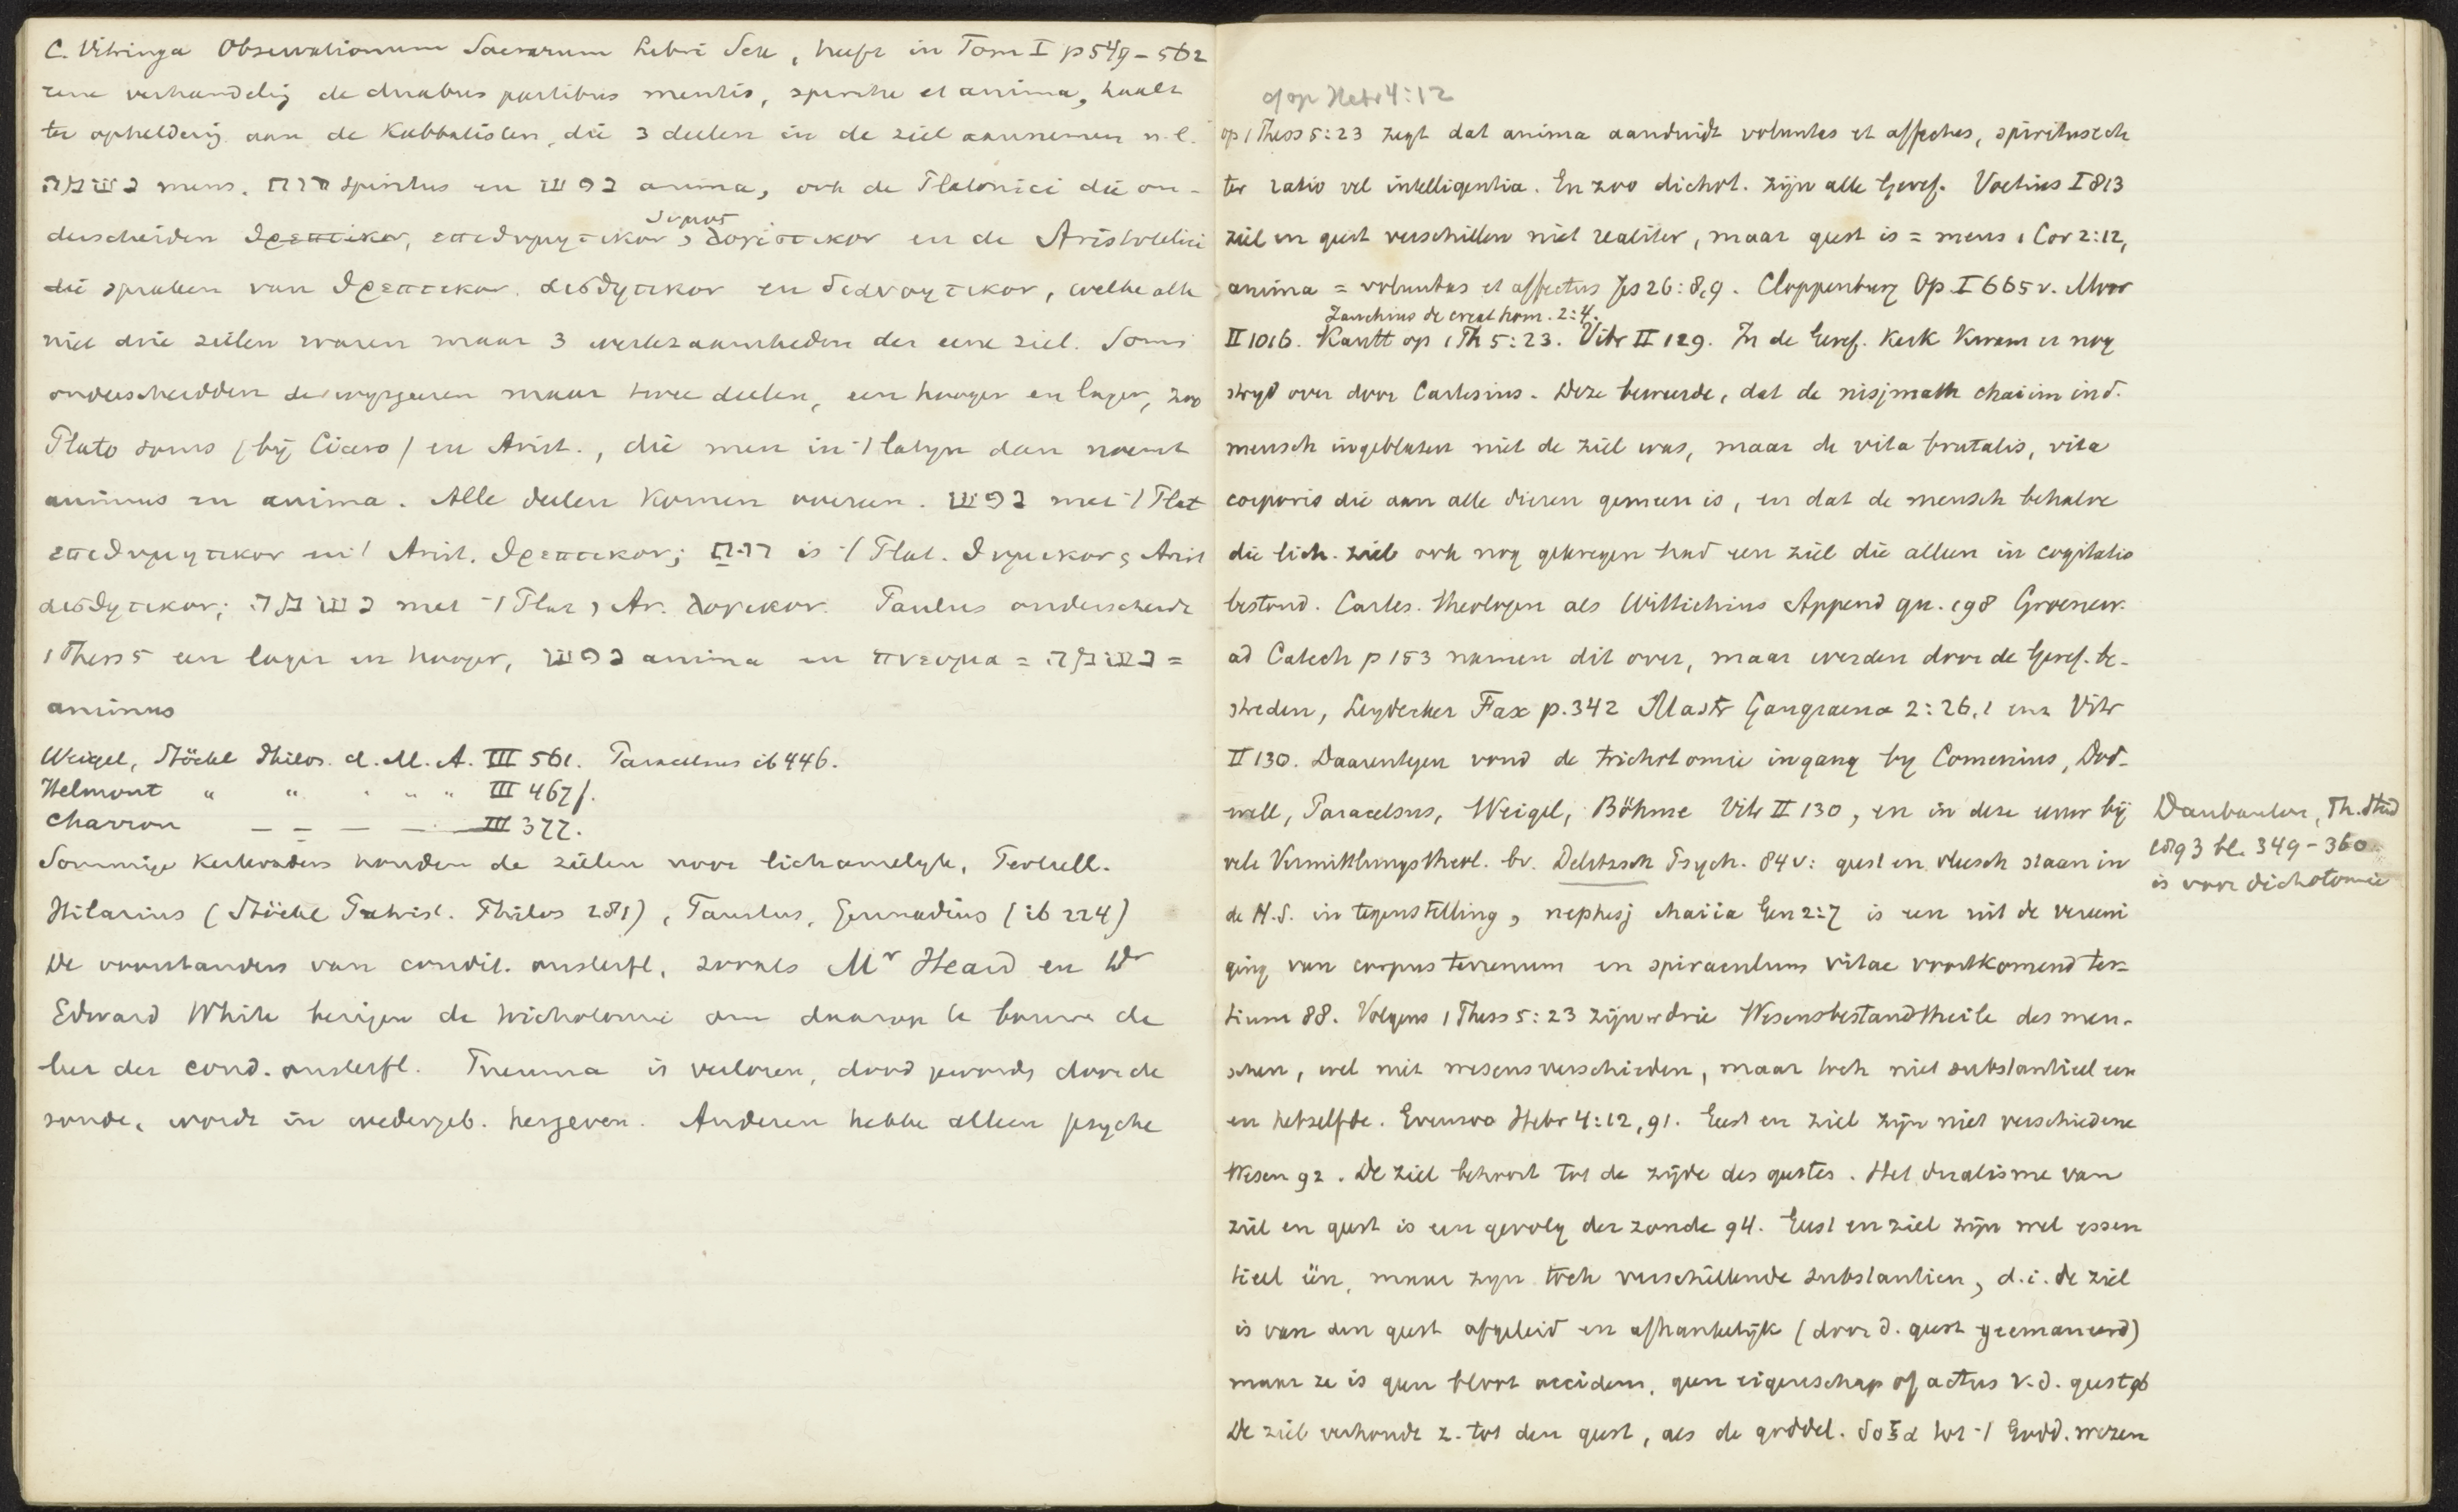 C. Vitringa Observationum Sacrarum Libri Sex, heeft in Tom I p 549-562
eene verhandeling de duabus partibus mentis, spiritu et anima, haalt
ter opheldering aan de Kabbalisten, die 3 deelen in de ziel aannemen n.l.
נשמה mens, רוח spiritus en נפש anima, ook de Platonici die on-
derscheiden θρεπτικον, επιθυμητικον, θυμος λογιστικον en de Aristotelici
die spraken van θρεπτικον, αισθητικον en διανοητικον, welke alle
niet drie zielen waren maar 3 werkzaamheden der eene ziel. Soms
onderscheidden de wijsgeeren maar twee deelen, een hooger en lager, zoo
Plato soms (bij Cicero) en Arist., die men in 't latijn dan noemt
animus en anima. Alle deelen komen overeen. נפש met 't Plat
επιθυμητικον en 't Arist. θρεπτικον; רוח is 't Plat. θυμικον, Arist
αισθητικον; נשמה met 't Plat, Ar. λογικον. Paulus onderscheidt
1 Thess 5 een lager en hooger, נפש anima en πνευμα = נשמה =
animus
Weigel, Stöckl Philos. d. M. A. III 561. Paracelsus ib 446.
Helmont " " " " " III 467f.
Charron — — — — III 377.
Sommige kerkvaders houden de zielen voor lichamelijk, Tertull.
Hilarius (Stöckl Patrist. Philos 281), Faustus, Gennadius (ib 224)
De voorstanders van condit. onsterfl., zooals Mr Heard en Dr
Edward White bezigen de trichotomie om daarop te bouwen de
leer der cond. onsterfl. Pneuma is verloren, dood geworden door de
zonde, wordt in wedergeb. hergeven. Anderen hebben alleen psyche
of op Hebr 4:12
op 1 Thess 5:23 zegt dat anima aanduidt voluntas et affectus, spiritus ech
ter ratio vel intelligentia. En zoo dichot. zijn alle Geref. Voetius I 813
ziel en geest verschillen niet realiter, maar geest is = mens 1 Cor 2:12,
anima = voluntas et affectus Jes 26:8,9. Cloppenburg Op. I 665 v. Moor
Zanchius de creat hom. 2:4.
II 1016. Kautt op 1 Th 5:23. Vitr II 129. In de Geref. Kerk kwam er nog
strijd over door Cartesius. Deze beweerde, dat de nisjmath chaiim in d.
mensch ingeblazen niet de ziel was, maar de vita brutalis, vita
corporis die aan alle dieren gemeen is, en dat de mensch behalve
die lich. ziel ook nog gekregen had een ziel die alleen in cogitatio
bestond. Cartes. theologen als Wittichius Append qu. 198 Groenew.
ad Catech p 153 namen dit over, maar werden door de Geref. be-
streden, Leydecker Fax p. 342 Mastr Gangraena 2:26,1 enz Vitr
II 130. Daarentegen vond de trichotomie ingang by Comenius, Dod-
well, Paracelsus, Weigel, Böhme Vitr II 130, en in deze eeuw bij
vele Vermittlungstheol. bv. Delitzsch Psych. 84 v: geest en vleesch staan in
de H.S. in tegenstelling, nephesj chaiia Gen 2:7 is een uit de vereeni
ging van corpus terrenum en spiraculum vitae voortkomend ter-
tium 88. Volgens 1 Thess 5:23 zijn er drie Wesensbestandtheile des men-
schen, wel niet wesensverschieden, maar toch niet substantieel een
en hetzelfde. Evenzoo Hebr 4:12, 91. Geest en ziel zijn niet verschiedene
Wesen 92. De ziel behoort tot de zijde des geestes. Het dualisme van
ziel en geest is een gevolg der zonde 94. Geest en ziel zijn wel essen
tieel één, maar zijn toch verschillende substantien, d.i. de ziel
is van den geest afgeleid en afhankelijk (door d. geest geemaneerd)
maar ze is geen bloot accidens, geen eigenschap of actus v.d. geest 96
De ziel verhoudt z. tot den geest, als de goddel. δοξα tot 't Godd. wezen
Daubanton, Th. Stud
1893 bl. 349-360
is voor dichotomie